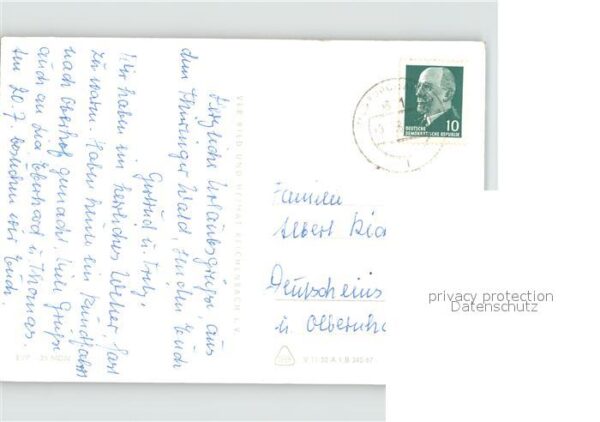 Herzliche Urlaubsgrüße aus
dem Thüringer Wald, senden Euch
Gertrud u. Fritz.
Wir haben ein herrliches Wetter, fast
zu warm. Haben heute ein Rundfahrt
nach Oberhof gemacht. Viele Grüße
auch an Lisa Eberhard u. Thomas.
Am 20.7. besuchen wir Euch.
VEB BILD UND HEIMAT REICHENBACH I. V.
10
DEUTSCHE
DEMOKRATISCHE REPUBLIK
Familie
Albert
Deutschein
ü. Olbernha
V 11 50 A 1 B 340/67
privacy protection
Datenschutz